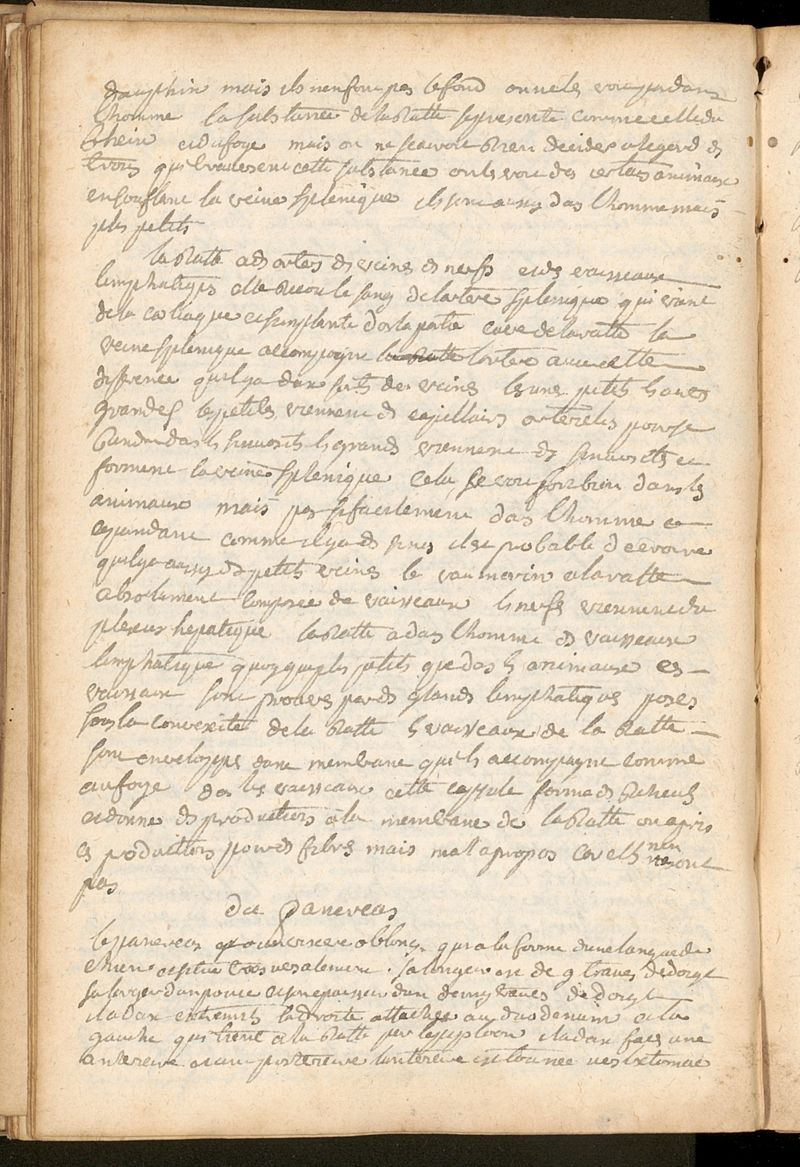 dauphin mais ils n'en font pas le fond on ne les voit pas dans
l'homme la substance de la ratte se presente comme celle du
et du foye mais on ne scavoit rien decider a legard des
trous qui traversent cette substance on les voit des certais animaux
en souflant la veine splenique ils sont aussy das l'homme mais
plus petits
la ratte a ds arters ds veines ds nerfs et ds vaisseaux
limphatiques elle recoit le sang de lartere splenique qui vient
de la coeliaque et simplante ds la partie cave de la ratte la
veine splenique accompagne la ratte lartere avec cette
difference quil ya deux sorts de veines les une petits ls autres
grandes les petites viennent ds capillaires arterieles pour se
rendre das ls sinuosités ls grands viennent ds sinuosités et
forment la veine splenique cela se voit fort bien dans ls
animaux mais pas si facilement das l'homme
cependant comme il ya ds sinus il est probable de croire
quil ya aussy de petits veines le vau marin a la ratte
absolument composée de vaisseaux ls nerfs viennent du
plexus hepatique la ratte a das l'homme ds vaisseaux
limphatique quoyque plus petits que das ls animaux es
vaisseaux sont prouvés par ds glands limphatiques posés
sous la convexité de la ratte ls vaisseaux de la ratte
sont enveloppés dune membrane qui ls accompagne comme
au foye das ls vaisseaux cette capsule forme ds
et donne ds productios a la membrane de la ratte on a pris
es productios pour ds fibres mais mal apropos car ells nen
sont
pas
du Pancreas
le pancreas est un viscere oblong qui a la forme dune langue de
chien et situé transversalement. sa longeur est de 9 travers de doigt
sa largeur dun pouce et son epaisseur dun demy travers de doigt
il a deux extremits la droite attachée au duodenum et la
gauche qui tient a la ratte par lepiploon il a deux faces une
anterieure et une posterieure lanterieure est tournée vers lestomac